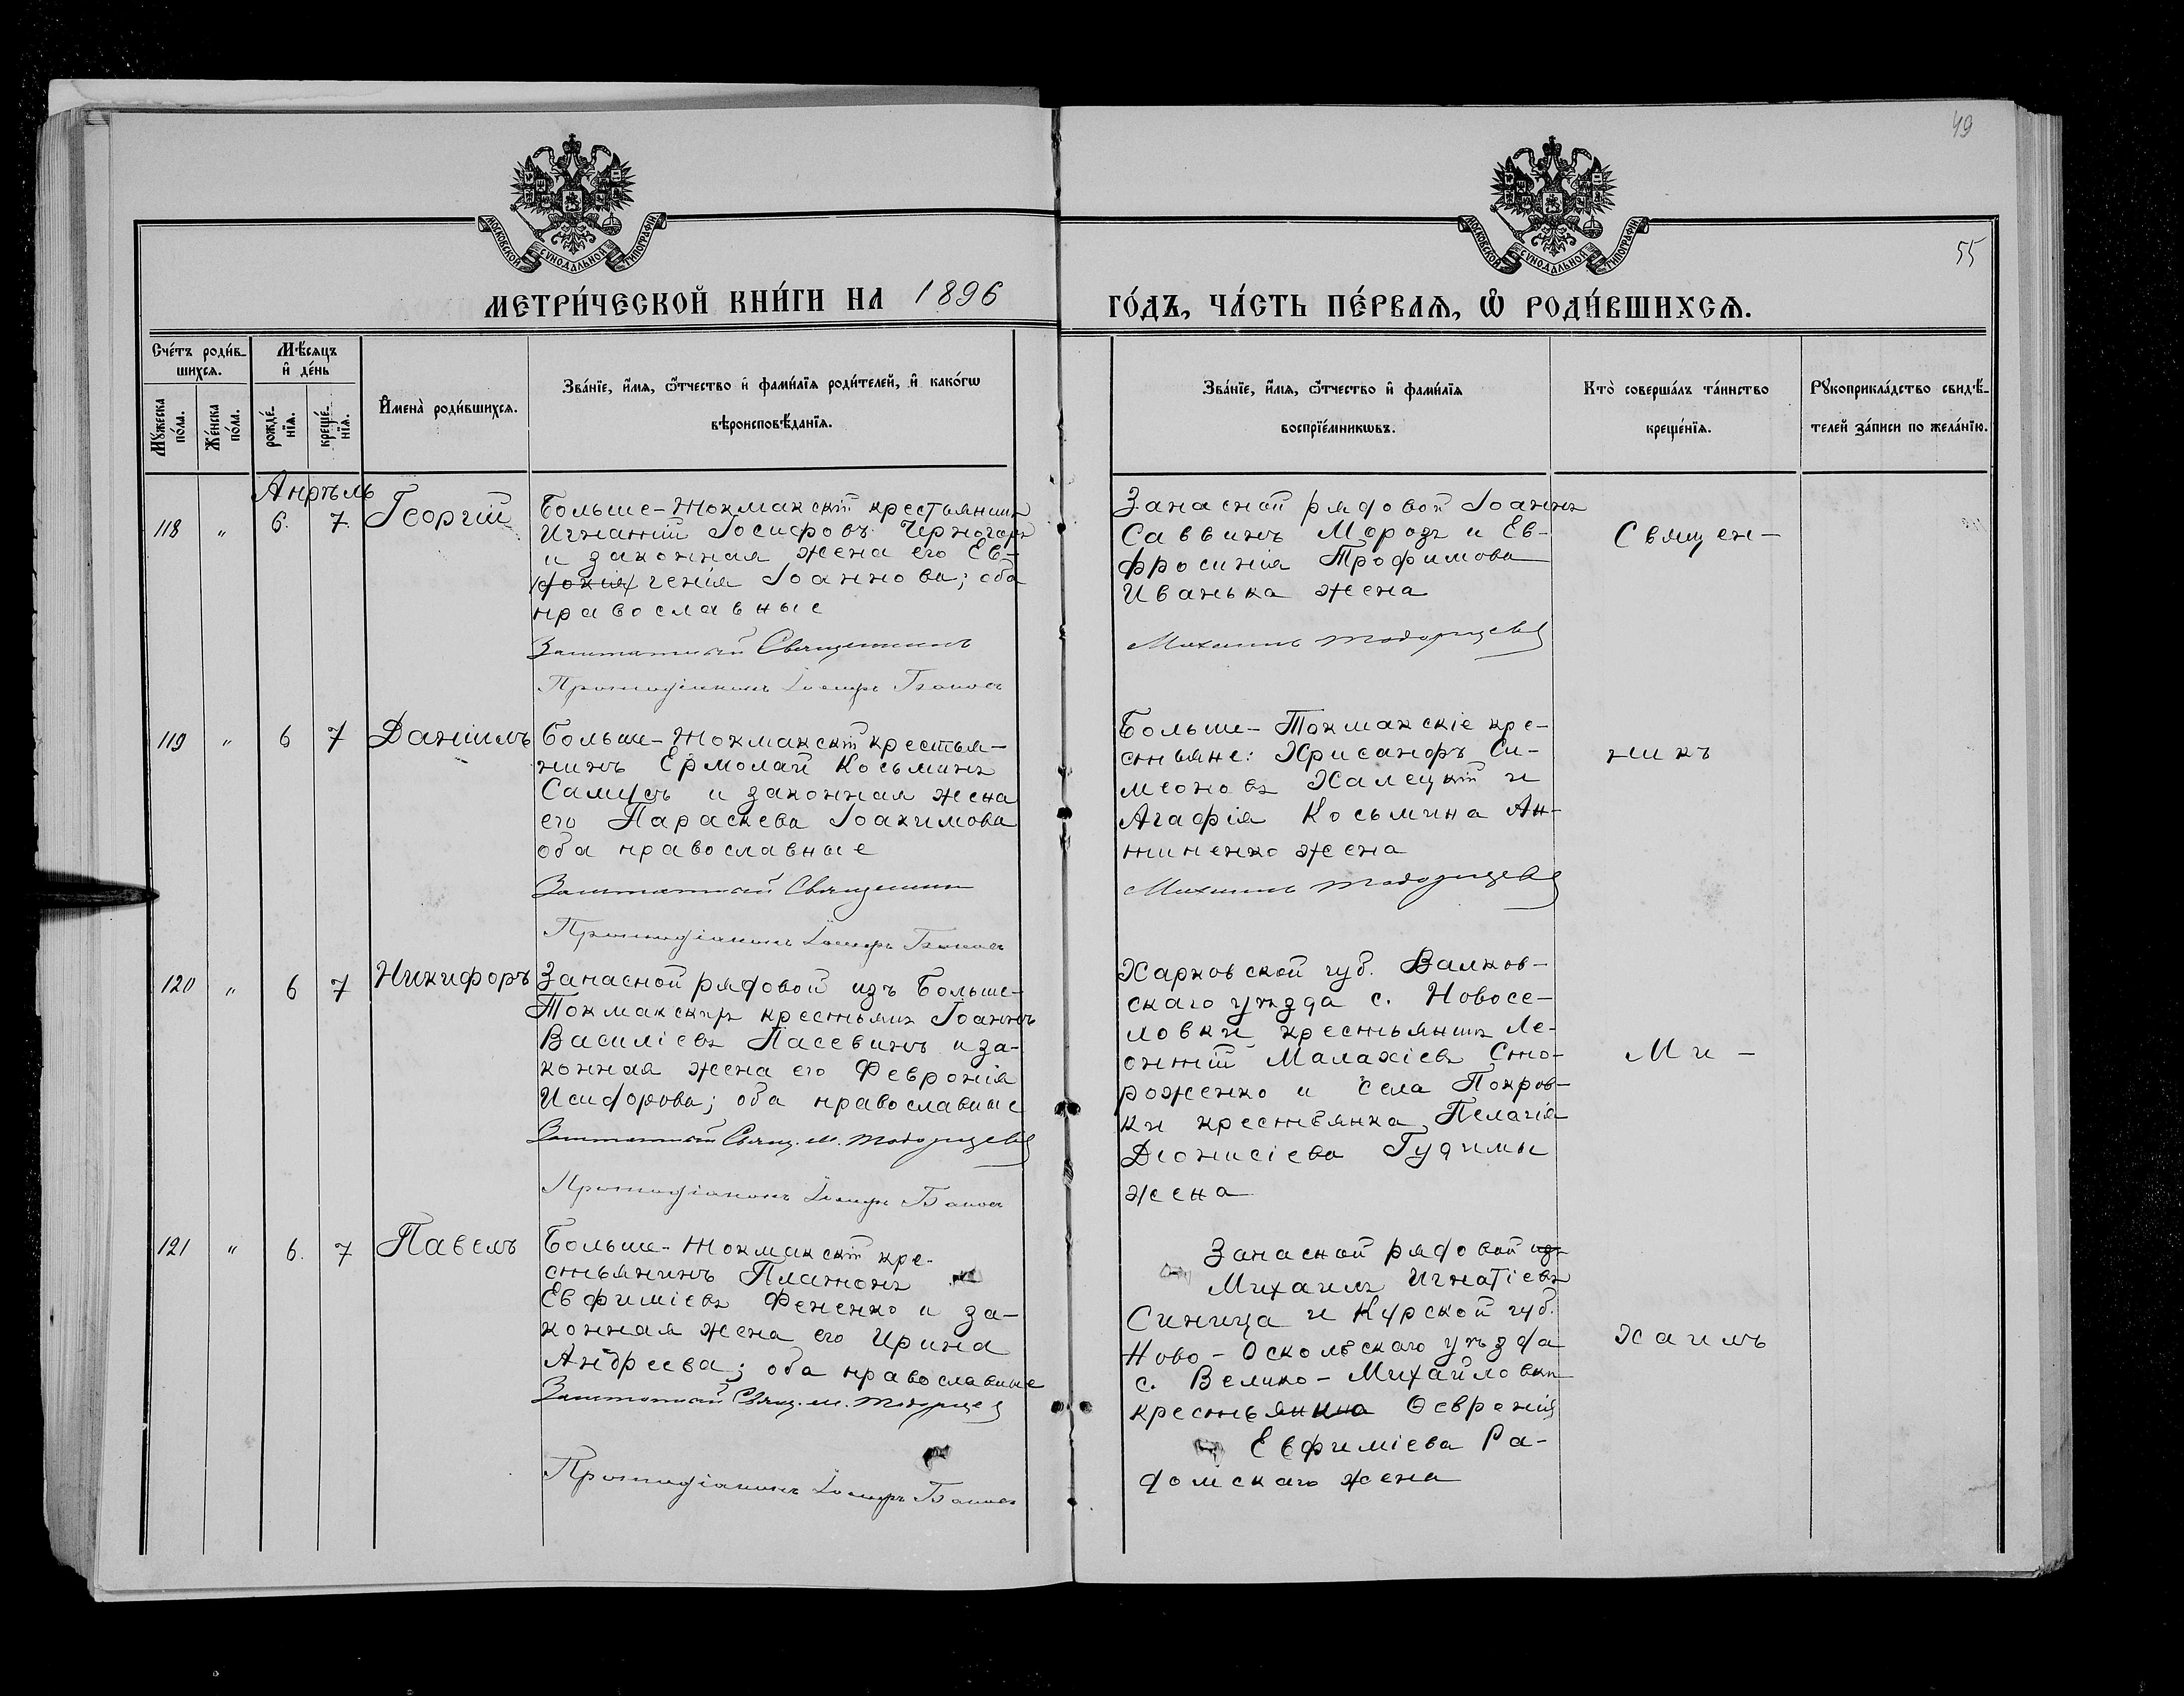 49
МОСКОВСКОЙ СУНОДАЛЬНОЙ ТИПОГРАФІИ
МОСКОВСКОЙ СУНОДАЛЬНОЙ ТИПОГРАФІИ
55
МЕТРИ́ЧЕСКОЙ КНИ́ГИ НА 1896
ГО́ДЪ, ЧА́СТЬ ПЕ́РВАѦ, Ѡ҆ РОДИ́ВШИХСѦ.
Сче́тъ роди́в-
шихсѧ.
Мꙋ́жеска
по́ла.
Же́нска
по́ла.
Мѣ́сѧцъ
и҆ де́нь
рожде́-
нїѧ.
креще́-
нїѧ.
И҆мена̀ роди́вшихсѧ.
Зва́нїе, и҆́мѧ, ѻ҆́тчество и҆ фами́лїѧ роди́телей, и҆ како́гѡ
вѣроисповѣ́данїѧ.
Зва́нїе, и҆́мѧ, ѻ҆́тчество и҆ фами́лїѧ
воспрїе́мникѡвъ.
Кто̀ соверша́лъ та́инство
креще́нїѧ.
Рꙋкоприкла́дство свидѣ́-
телей за́писи по жела́нїю.
Апрѣль
118 " 6. 7. Георгій
Больше-Токмакскій крестьянинъ
Игнатій Іосифовъ Черногоръ
и законная жена его Ев-
докія генія Іоаннова; оба
православные
Заштатный Священникъ
Протодіаконъ Іосифъ Баковъ
Запасной рядовой Іоаннъ
Саввинъ Морозъ и Ев-
фросинія Трофимова
Иванька жена
Михаилъ Тодорцевъ
Священ-
119 " 6 7 Даніилъ
Больше-Токмакскій крестья-
нинъ Ермолай Косьминъ
Самусь и законная жена
его Параскева Іоакимова
оба православные
Заштатный Священник
Протодіаконъ Іосифъ Баковъ
Больше-Токмакскіе кре-
стьяне: Хрисанфъ Си-
меоновъ Халецкій и
Агафія Косьмина Ан-
типенко жена
Михаилъ Тодорцевъ
никъ
120 " 6 7 Никифоръ
Запасной рядовой изъ Больше-
Токмакскихъ крестьянъ Іоаннъ
Василіевъ Пасевинъ и за-
конная жена его Февронія
Исидорова; оба православные
Заштатный Свящ. М. Тодорцевъ
Протодіаконъ Іосифъ Баковъ
Харковской губ. Валков-
скаго уѣзда с. Новосе-
ловки крестьянинъ Ле-
онтій Малахіевъ Сто-
роженко и села Покров-
ки крестьянка Пелагія
Діонисіева Гудимы
жена
Ми-
121 " 6. 7 Павелъ
Больше-Токмакскій кре-
стьянинъ Платонъ
Евфиміевъ Фененко и за-
конная жена его Ирина
Андреева; оба православные
Заштатный Свящ. М. Тодорцев
Протодіаконъ Іосифъ Баковъ
Запасной рядовой изъ
Михаилъ Игнатіевъ
Синица и Курской губ.
Ново-Оскольскаго уѣзда
с. Велико-Михайловки
крестьянина Ѳевронія
Евфиміева Ра-
домскаго жена
хаилъ